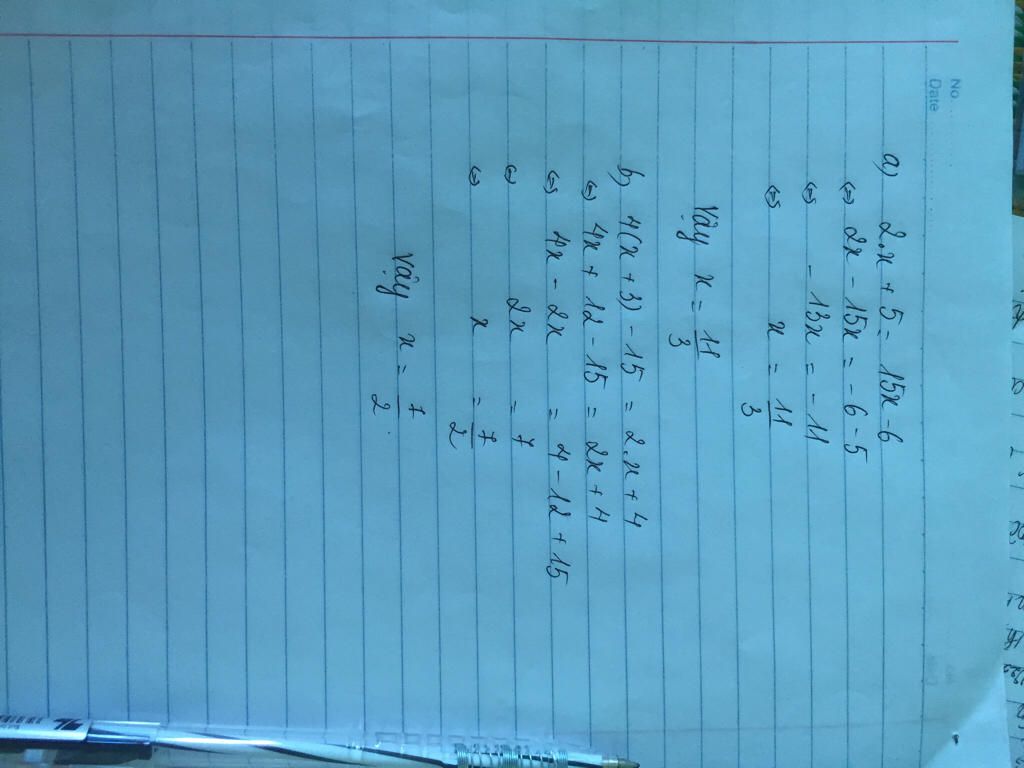 No.
Date
a) 2.x + 5 = 15x - 6
⇔ 2x - 15x = -6 - 5
⇔ - 13x = - 11
⇔ x = 11/3
Vậy x = 11/3
b) 4(x + 3) - 15 = 2.x + 4
⇔ 4x + 12 - 15 = 2x + 4
⇔ 4x - 2x = 4 - 12 + 15
⇔ 2x = 7
⇔ x = 7/2
Vậy x = 7/2.